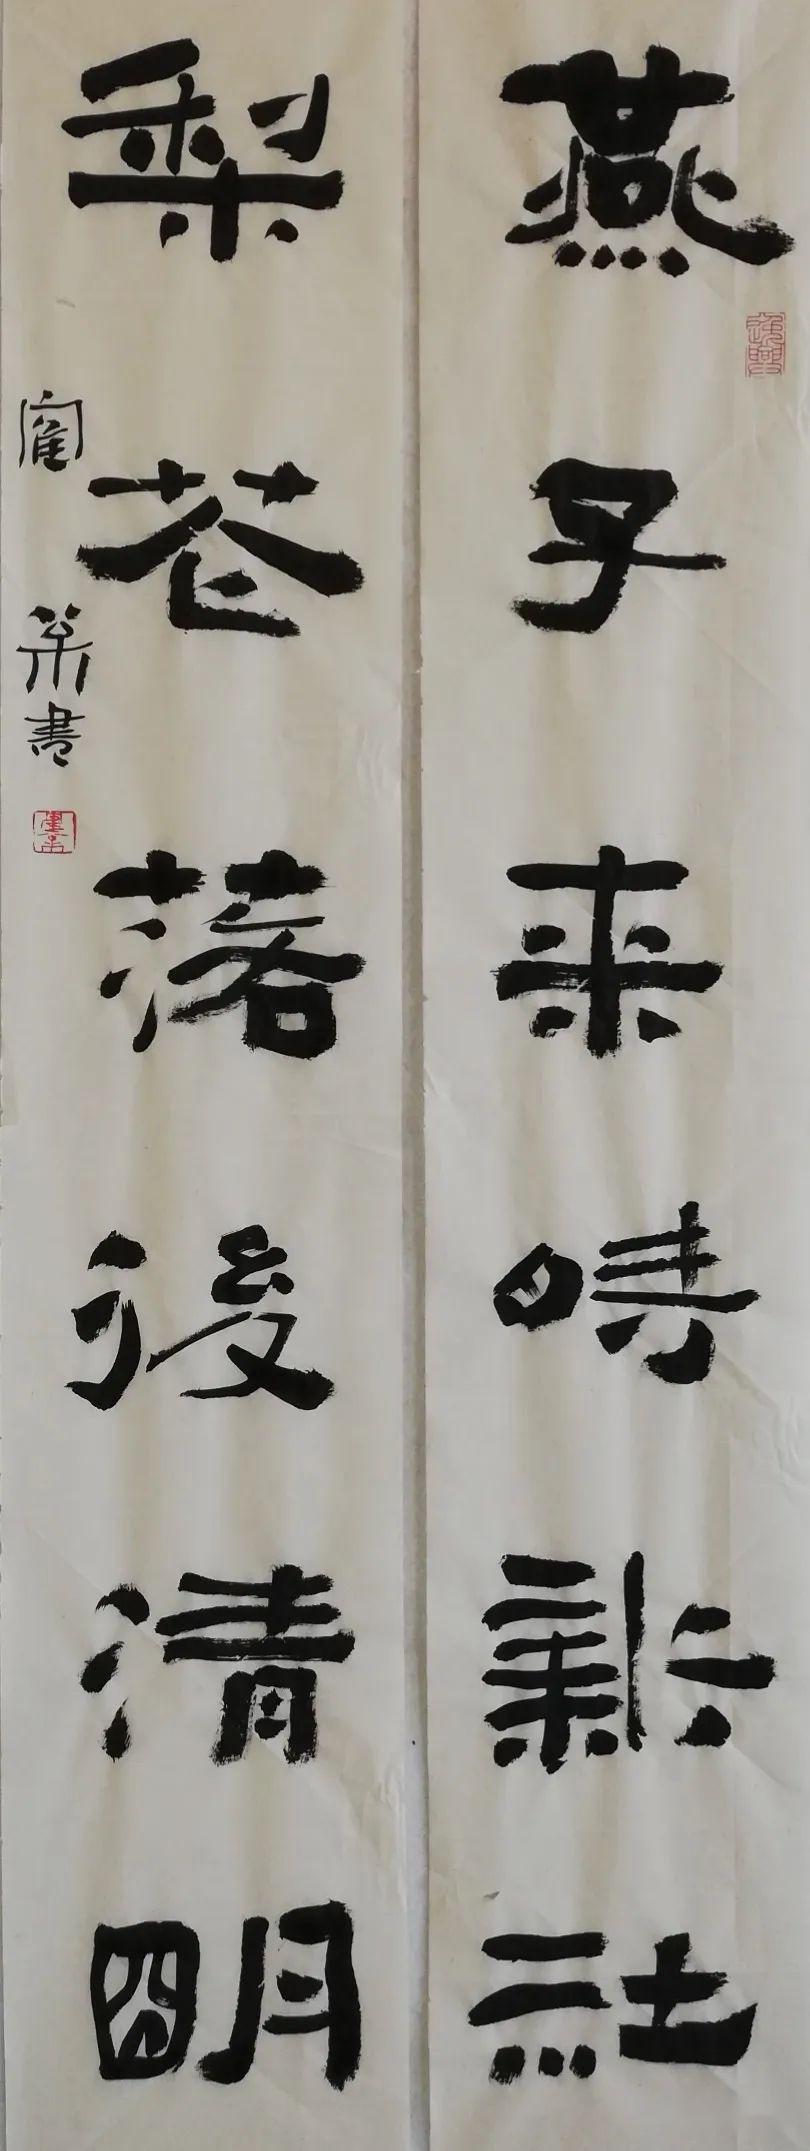 燕子来時新社
梨花落後清明
書